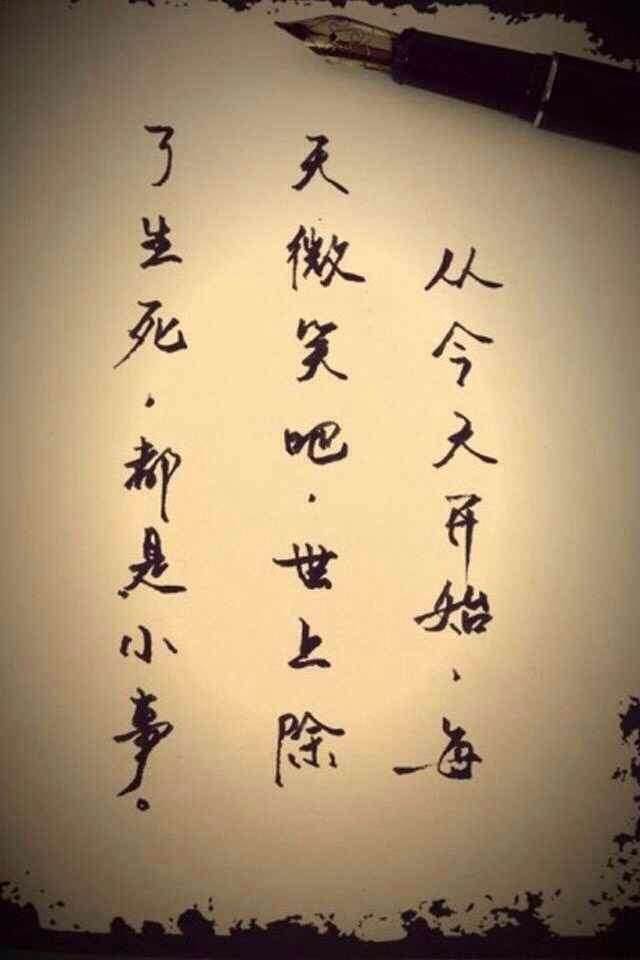 从今天开始，每
天微笑吧，世上除
了生死，都是小事。